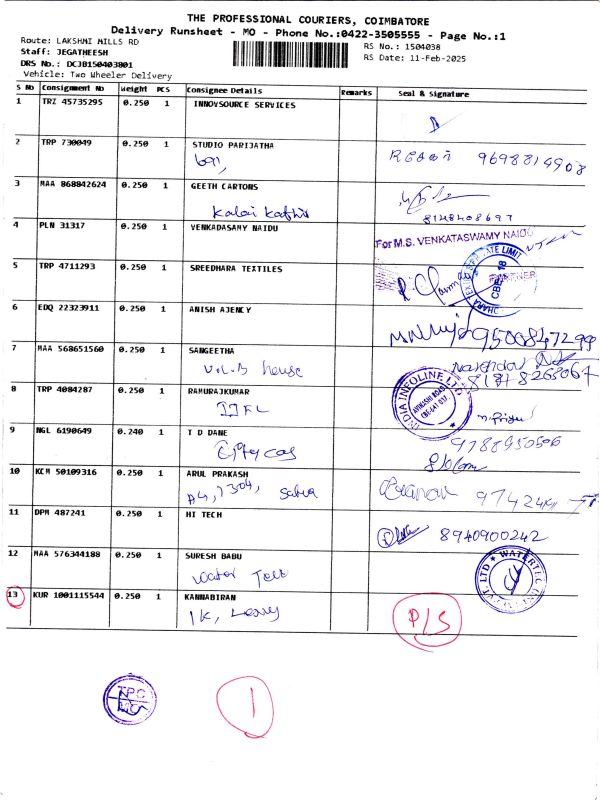 THE PROFESSIONAL COURIERS, COIMBATORE
Delivery Runsheet - MO - Phone No.:0422-3505555 - Page No.:1
Route: LAKSHMI MILLS RD
RS No.: 1504038
Staff: JEGATHEESH
RS Date: 11-Feb-2025
DRS No.: DCJB150403801
Vehicle: Two Wheeler Delivery
S No Consignment No Weight PCS Consignee Details Remarks Seal & Signature
1 TRZ 45735295 0.250 1 INNOVSOURCE SERVICES
2 TRP 730049 0.250 1 STUDIO PARIJATHA
9698814908
3 MAA 868842624 0.250 1 GEETH CARTONS
Kalai Kathir
8148408697
4 PLN 31317 0.250 1 VENKADASAMY NAIDU
For M.S. VENKATASWAMY NAIDU
PARTNER
5 TRP 4711293 0.250 1 SREEDHARA TEXTILES
6 EDQ 22323911 0.250 1 ANISH AJENCY
9500847299
7 MAA 568651560 0.250 1 SANGEETHA
V.L.B house
8 TRP 4084287 0.250 1 RAMURAJKUMAR
IIFL
INDIA INFOLINE LTD
9 NGL 6190649 0.240 1 T D DANE
9788950506
10 KCM 50109316 0.250 1 ARUL PRAKASH
A4, 7304,
11 DPM 487241 0.250 1 HI TECH
8940900242
12 MAA 576344188 0.250 1 SURESH BABU
Water Tec
13 KUR 1001115544 0.250 1 KANNABIRAN
P/S
TPC
MO
1